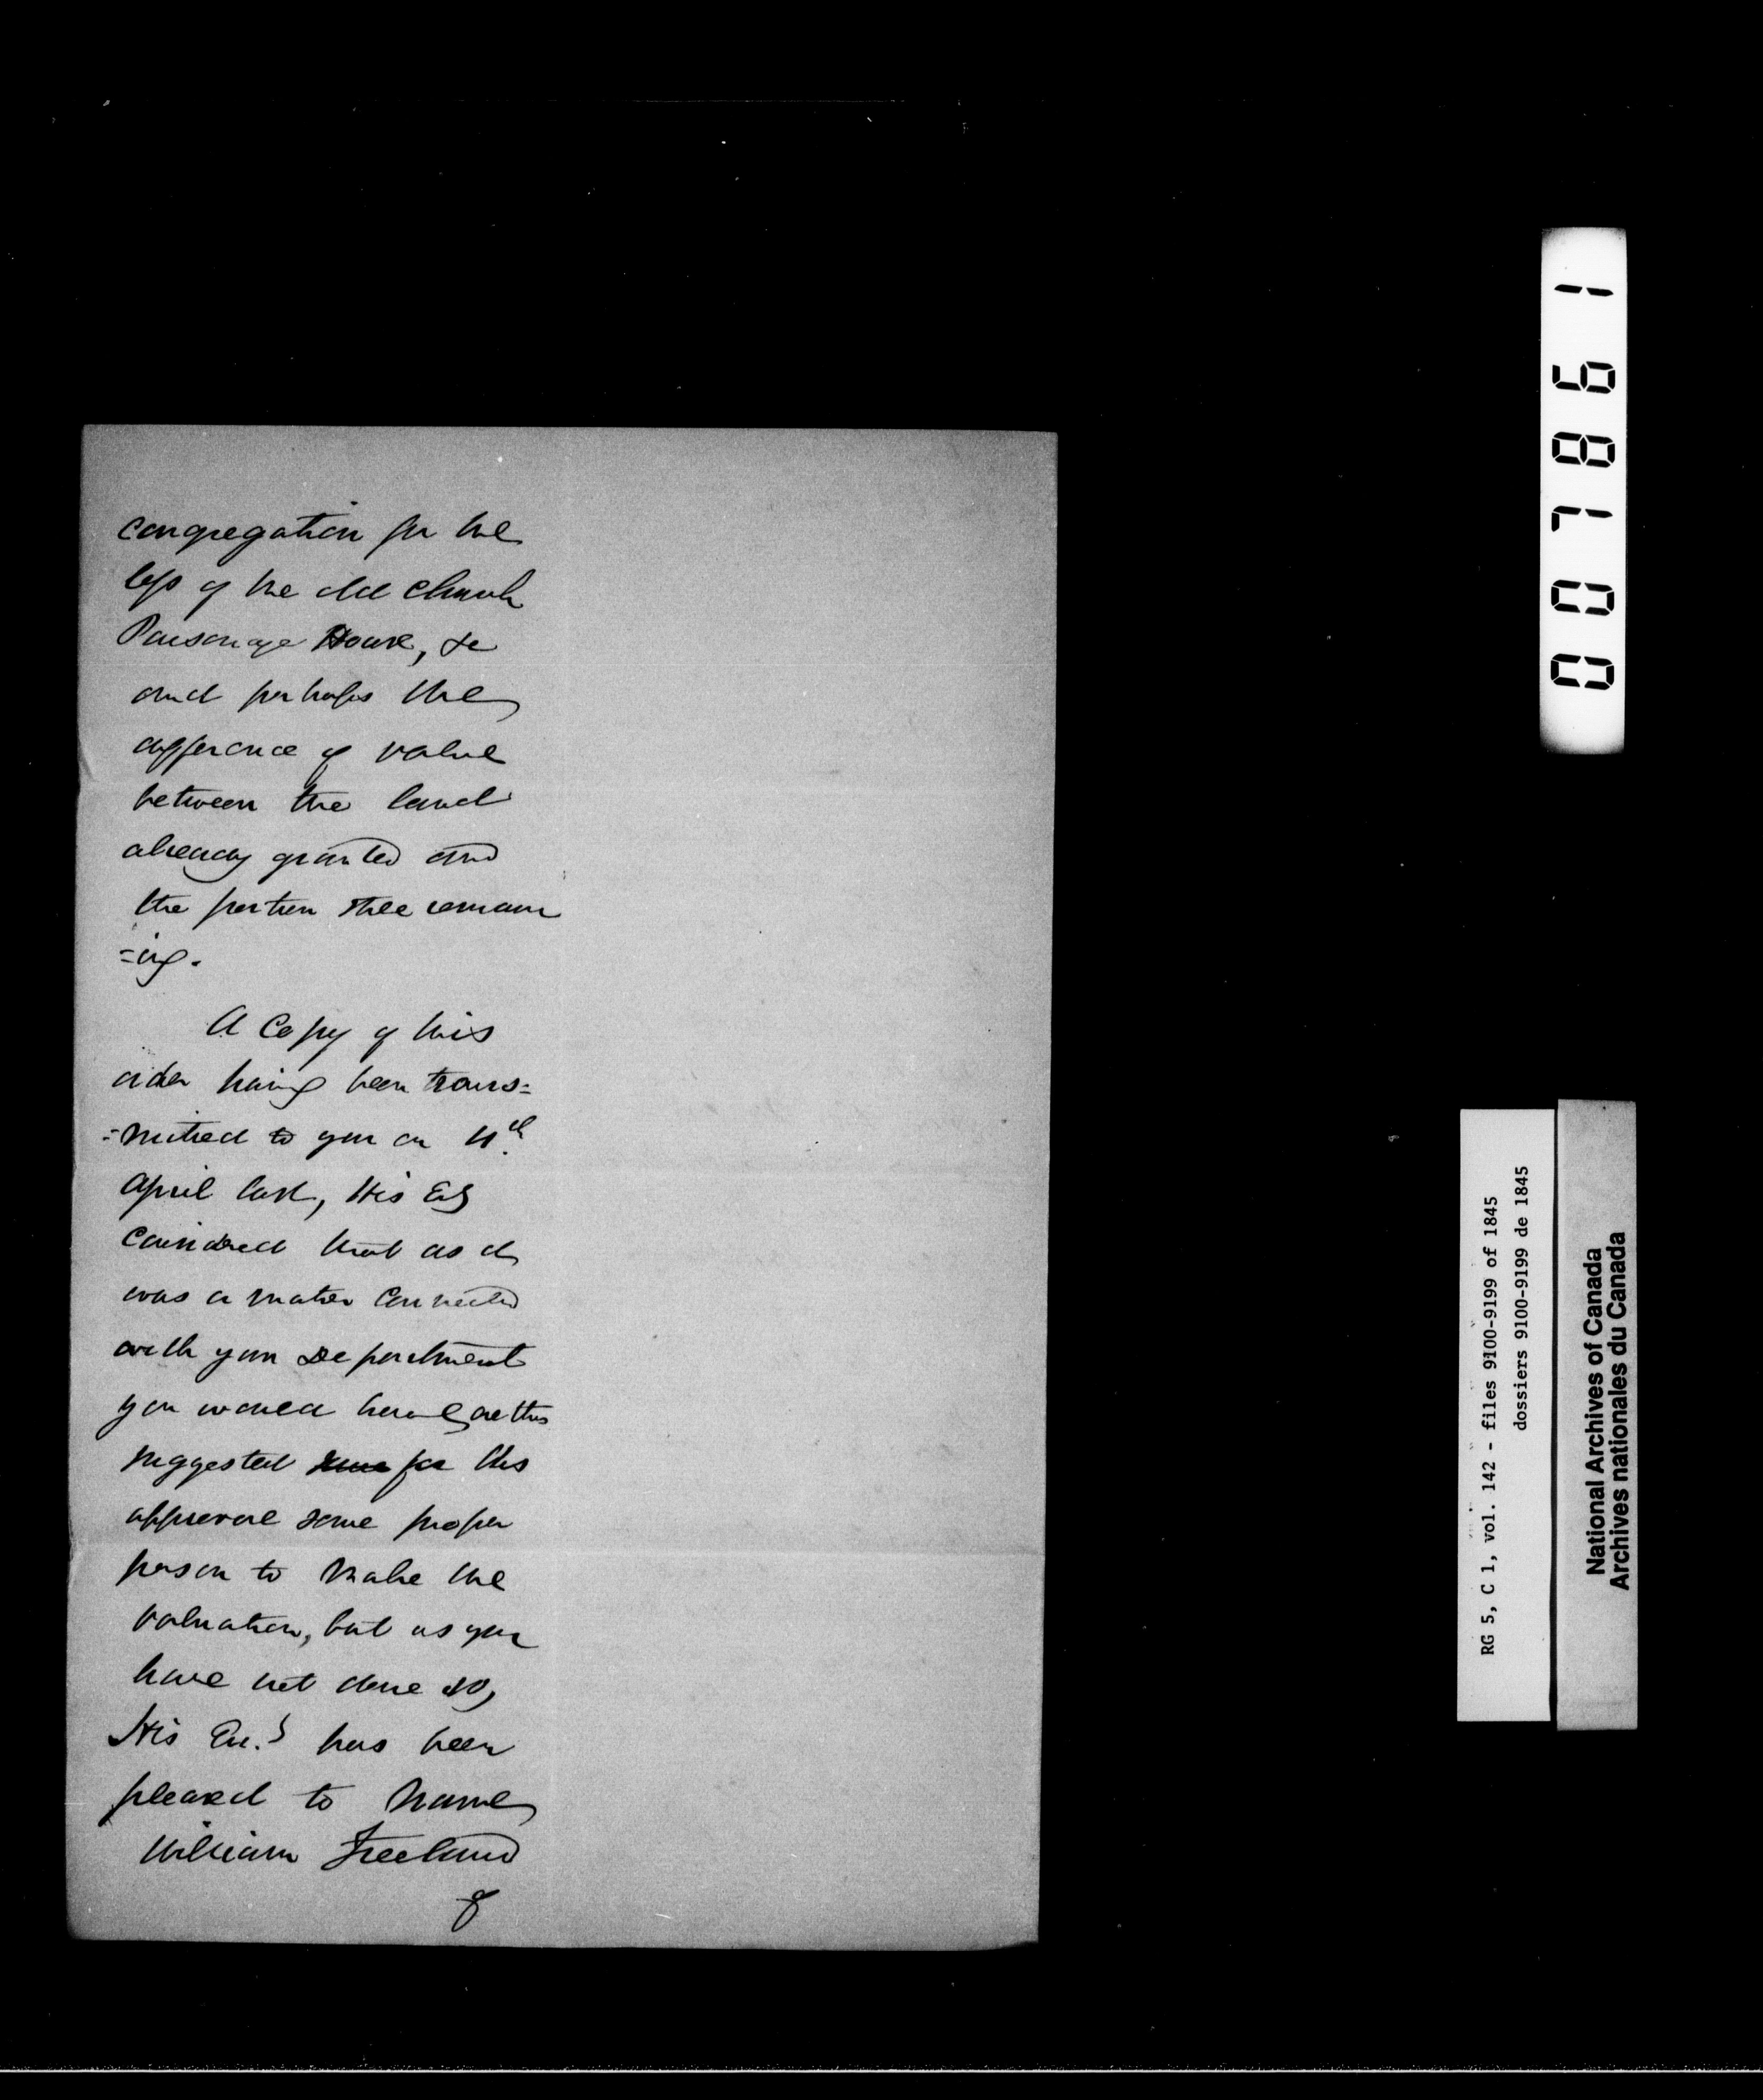 congregation for the
loss of the old church
Parsonage House, &c
and perhaps the
difference of value
between the land
already granted and
the portion still remain
=ing.
A Copy of this
order having been trans=
=mitted to you on 11th
April last, His Ex
considered that as it
was a matter connected
with your Department
you would have
suggested for His
approval some proper
person to make the
valuation, but as you
have not done so,
His Ex.y has been
pleased to name
William Freeland
of
007861
RG 5, C 1, vol. 142 - files 9100-9199 of 1845
dossiers 9100-9199 de 1845
National Archives of Canada
Archives nationales du Canada